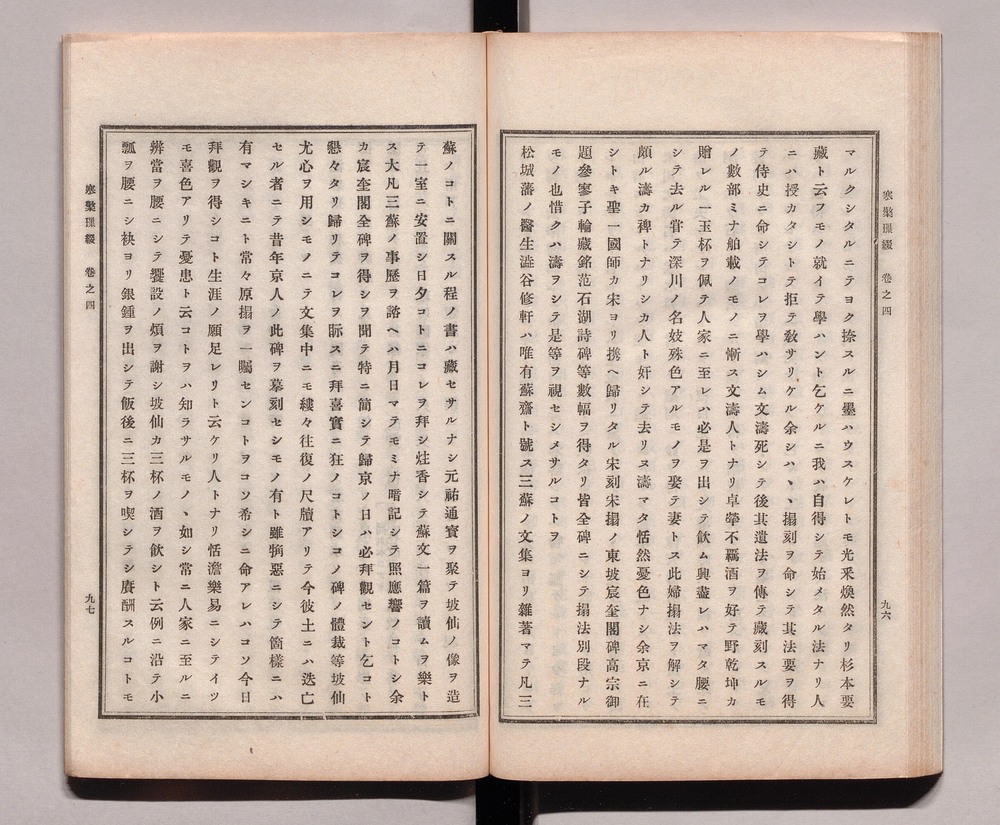 寒檠璅綴　卷之四
九六
マルクシタルニテヨク捺スルニ墨ハウスケレトモ光釆煥然タリ杉本要
藏ト云フモノ就イテ學ハント乞ケルニ我ハ自得シテ始メタル法ナリ人
ニハ授カタシトテ拒テ敎サリケル余シハ丶搨刻ヲ命シテ其法要ヲ得
テ侍史ニ命シテコレヲ學ハシム文濤死シテ後其遺法ヲ傳テ藏刻スルモ
ノ數部ミナ舶載ノモノニ慚ス文濤人トナリ卓犖不羈酒ヲ好テ野乾坤カ
贈レル一玉杯ヲ佩テ人家ニ至レハ必是ヲ出シテ飮ム興盡レハマタ腰ニ
シテ去ル甞テ深川ノ名妓殊色アルモノヲ娶テ妻トス此婦搨法ヲ解シテ
頗ル濤カ碑トナリシカ人ト奸シテ去リヌ濤マタ恬然憂色ナシ余京ニ在
シトキ聖一國師カ宋ヨリ携ヘ歸リタル宋刻宋搨ノ東坡宸奎閣碑高宗御
題參寥子輪藏銘范石湖詩碑等數幅ヲ得タリ皆全碑ニシテ搨法別段ナル
モノ也惜クハ濤ヲシテ是等ヲ視セシメサルコトヲ
松城藩ノ醫生澁谷修軒ハ唯有蘇齋ト號ス三蘇ノ文集ヨリ雜著マテ凡三
蘇ノコトニ關スル程ノ書ハ藏セサルナシ元祐通寳ヲ聚テ坡仙ノ像ヲ造
テ一室ニ安置シ日夕コトニコレヲ拜シ炷香シテ蘇文一篇ヲ讀ムヲ樂ト
ス大凡三蘇ノ事歷ヲ諮ヘハ月日マテモミナ暗記シテ照應響ノコトシ余
カ宸奎閣全碑ヲ得シヲ聞テ特ニ簡シテ歸京ノ日ハ必拜觀セント乞コト
懇々タリ歸リテコレヲ眎スニ拜喜實ニ狂ノコトシコノ碑ノ體裁等坡仙
尤心ヲ用シモノニテ文集中ニモ縷々往復ノ尺牘アリテ今彼土ニハ迭亡
セル者ニテ昔年京人ノ此碑ヲ摹刻セシモノ有ト雖狥惡ニシテ箇樣ニハ
有マシキニト常々原搨ヲ一矚センコトヲコソ希シニ命アレハコソ今日
拜觀ヲ得シコト生涯ノ願足レリト云ケリ人トナリ恬澹樂易ニシテイツ
モ喜色アリテ憂患ト云コトヲハ知ラサルモノヽ如シ常ニ人家ニ至ルニ
辨當ヲ腰ニシテ饗設ノ煩ヲ謝シ坡仙カ三杯ノ酒ヲ飮シト云例ニ沿テ小
瓢ヲ腰ニシ袂ヨリ銀鍾ヲ出シテ飯後ニ三杯ヲ喫シテシ賡酬スルコトモ
寒檠璅綴　卷之四
九七